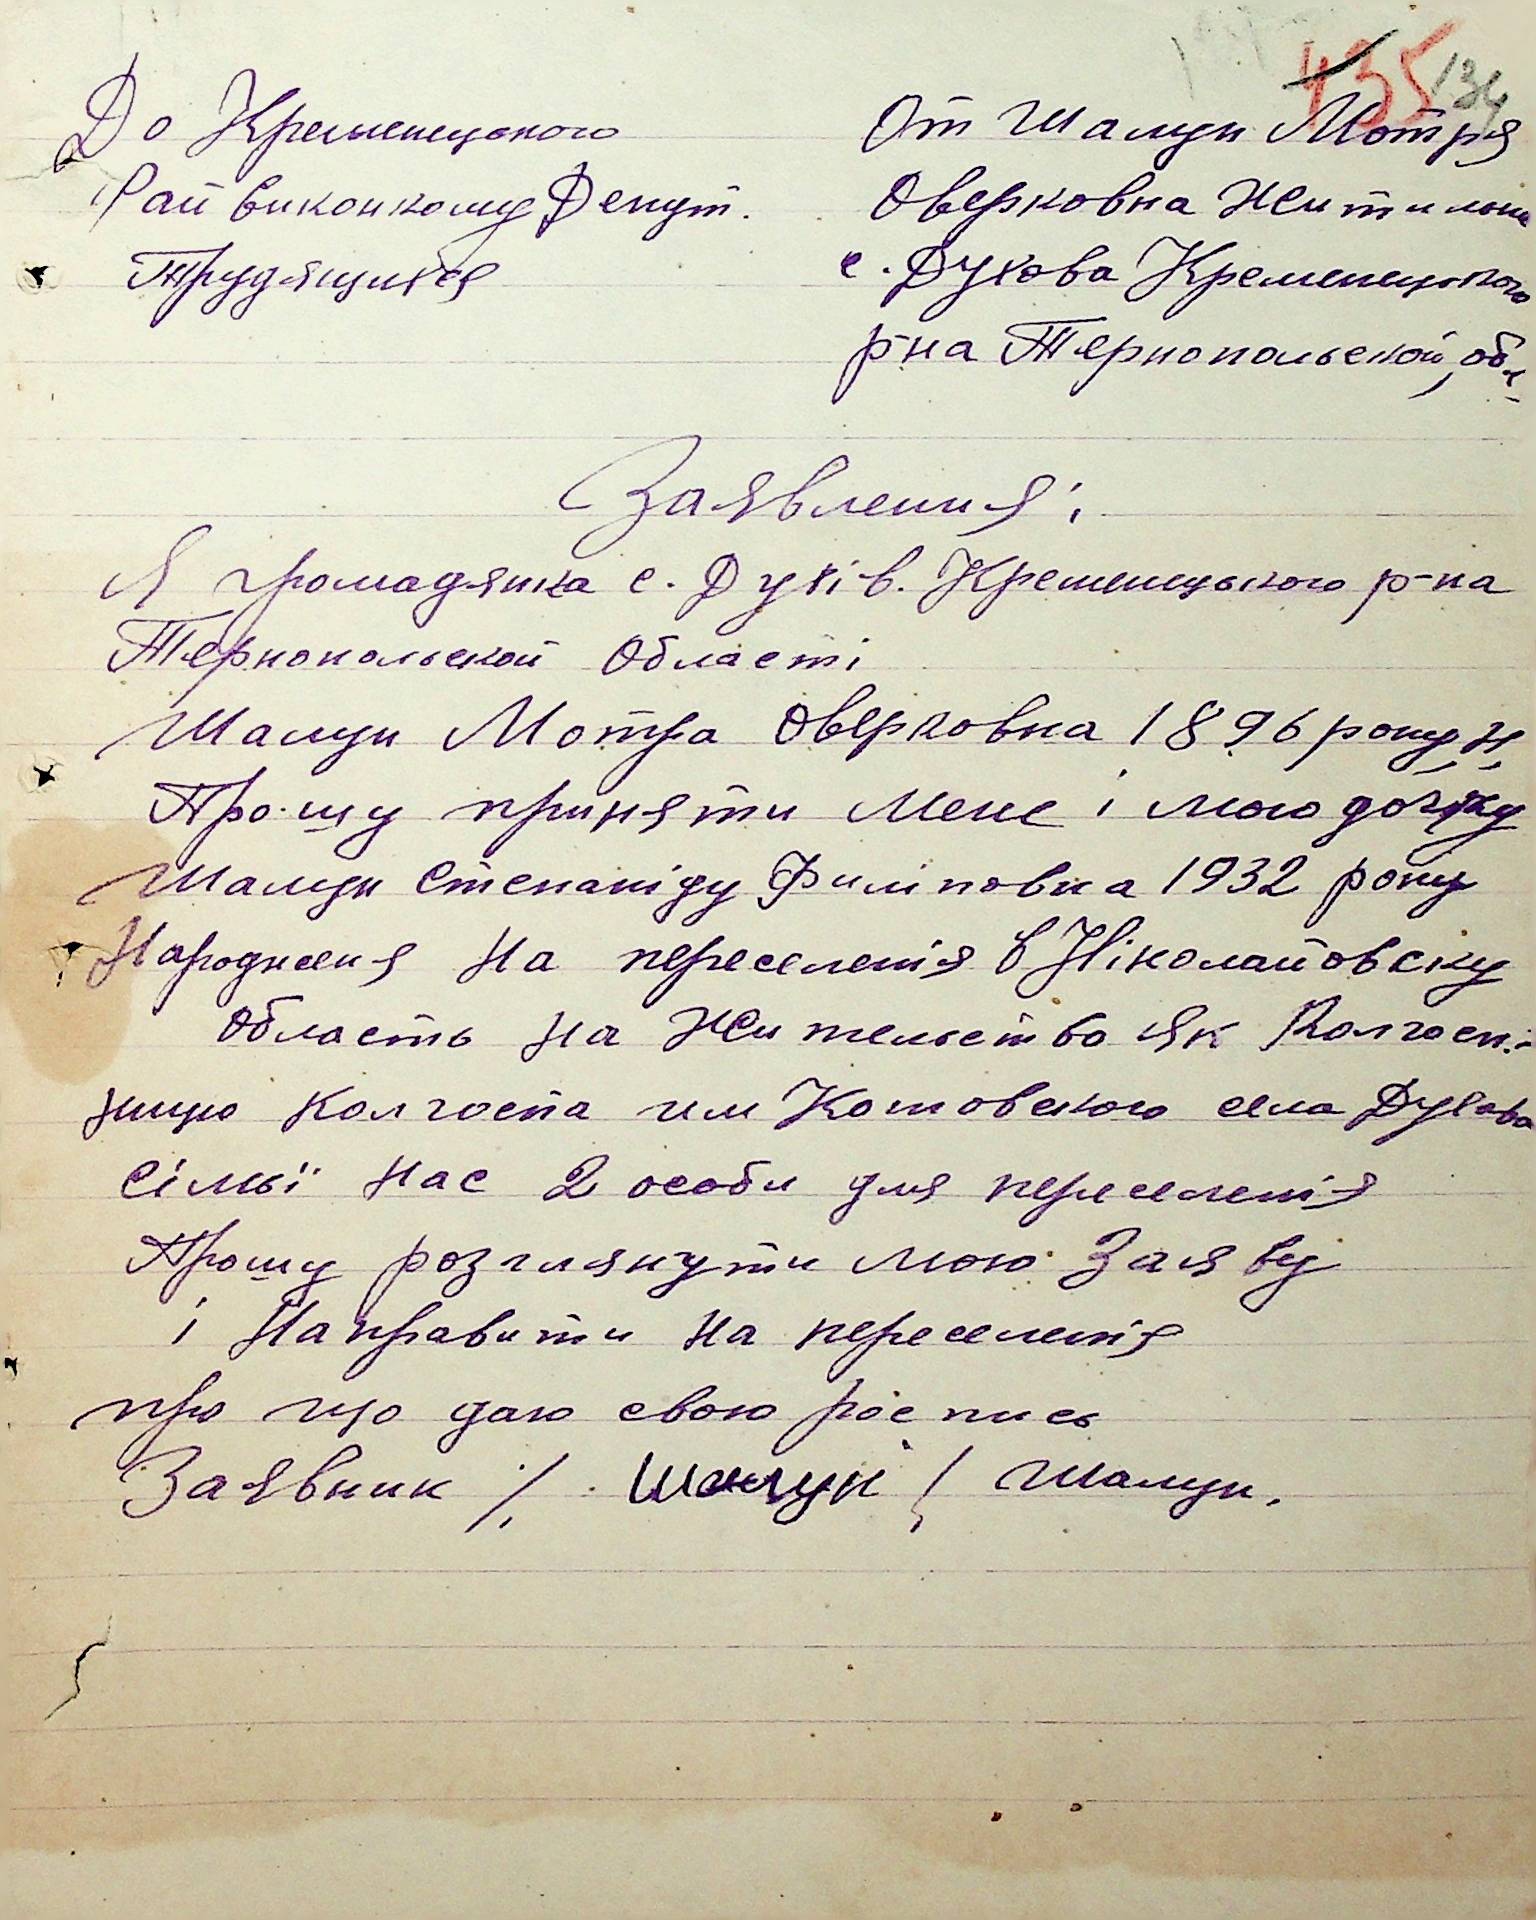 435 134
До Кременецького
Рай виконкому Депут.
Трудящихся
От Шамун Мотря
Оверковна Жителька
с. Духова Кременецкого
р-на Тернопольской обл.
Заявления:
Я громадянка с. Духів. Кременецького р-на
Тернопольской Області
Шамун Мотра Оверковна 1896 року н,
Прошу приняти Мене і мою дочку
Шамун Степаніду Филіповна 1932 року
Народженя На переселенія в Ніколайовску
Область На Жительство Як Колгосп.-
ницю Колгоспа им Котовского села Духова
Сімьї Нас 2 особи для переселенія
Прошу розглянути мою Заяву
і Направити На переселенія
про що даю свою роспись
Заявник /. Шамун / Шамун.